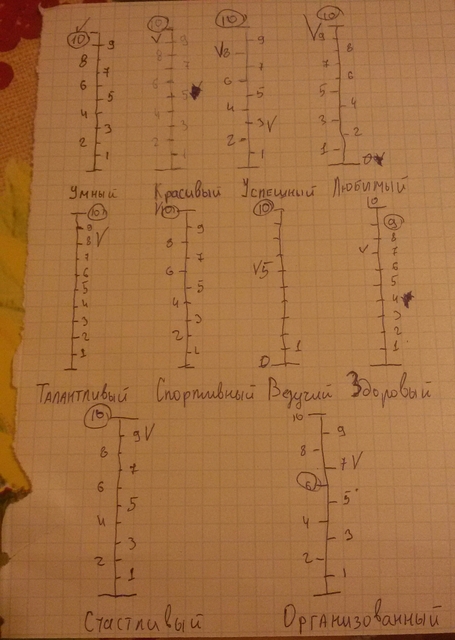 10 9 8 7 6 5 4 3 2 1
10 V 9 8 7 6 5 4 3 2 1
10 9 V8 7 6 5 4 3V 2 1
10 V9 8 7 6 5 4 3 2 1 0
Умный Красивый Успешный Любимый
10 9 8V 7 6 5 4 3 2 1
V10 9 8 7 6 5 4 3 2 1
10 V5 1 0
10 9 8 7 6 5 4 3 2 1
Талантливый Спортивный Везучий Здоровый
10 9V 8 7 6 5 4 3 2 1
10 9 8 7V 6 5 4 3 2 1
Счастливый Организованный